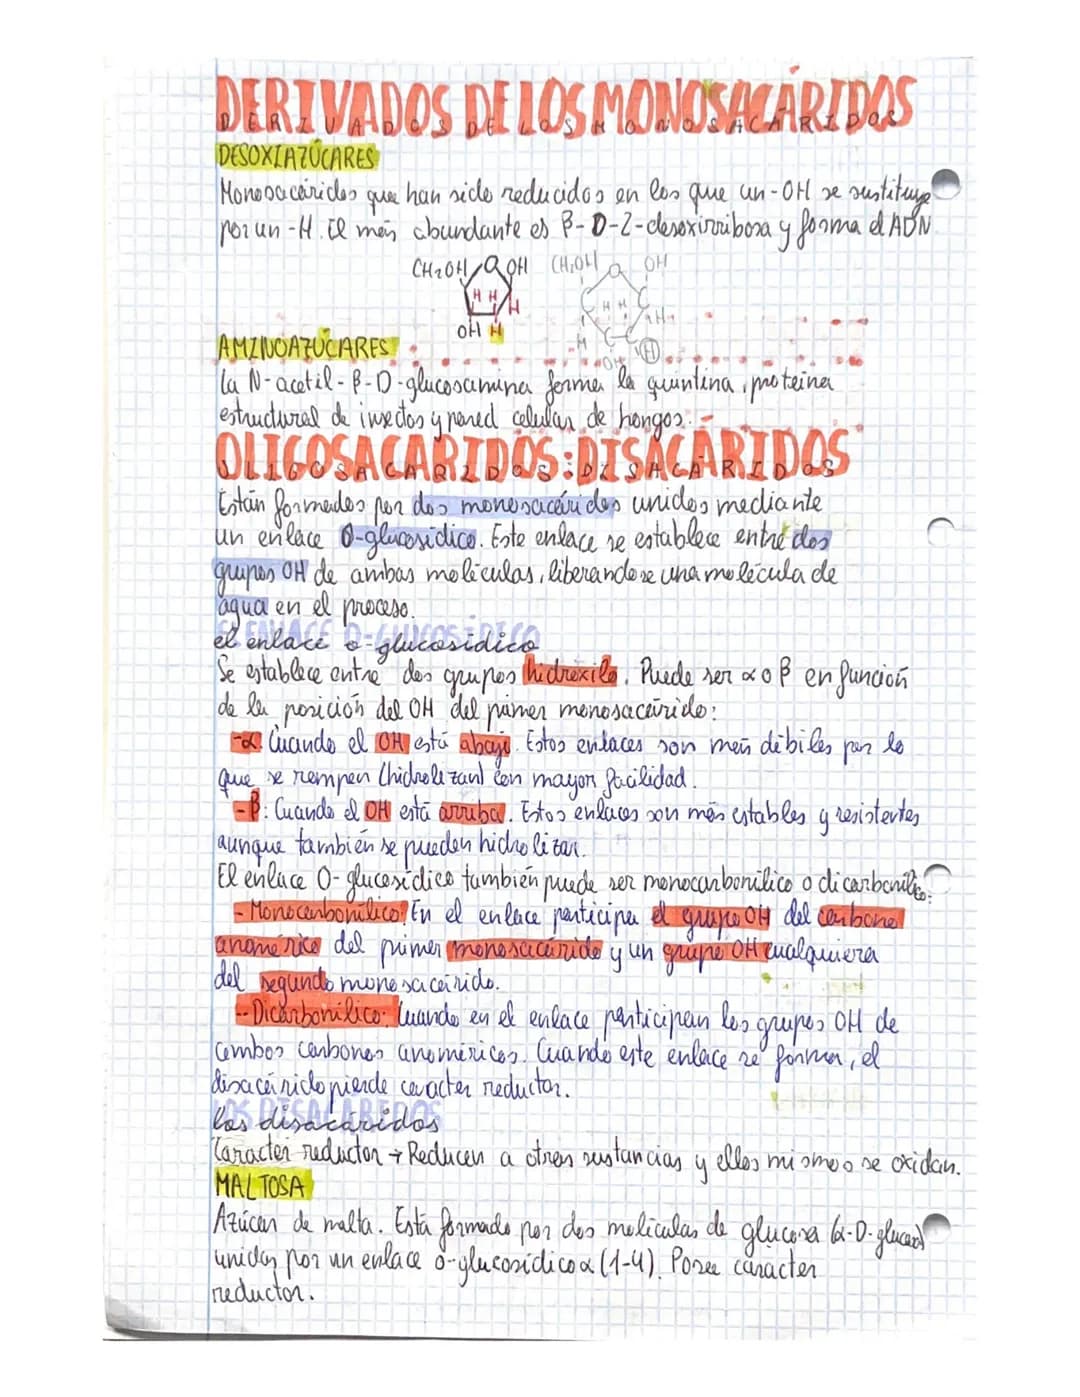 DERIVADOS DE LOS MONOSACÁRIDOS
DESOXIAZÚCARES
Monosacáridos que han sido reducidos en los que un -OH se sustituye
por un -H. El más abundante es β-D-2-desoxirribosa y forma el ADN.
CH₂OH O OH CH₂OH O OH
H H H C H H C
OH H H C C H
OH H
AMINOAZÚCARES
La N-acetil-β-D-glucosamina forma la quintina, proteina
estructural de insectos y pared celular de hongos.
OLIGOSACARIDOS: DISACÁRIDOS
Están formados por dos monosacáridos unidos mediante
un enlace O-glucosídico. Este enlace se establece entre dos
grupos OH de ambas moléculas, liberandose una molécula de
agua en el proceso.
el enlace o-glucosídico
Se establece entre dos grupos hidroxilo. Puede ser α o β en función
de la posición del OH del primer monosacárido:
-α: Cuando el OH está abajo. Estos enlaces son más débiles por lo
que se rompen (hidrolizan) con mayor facilidad.
-β: Cuando el OH está arriba. Estos enlaces son más estables y resistentes
aunque también se pueden hidrolizar.
El enlace O-glucosídico también puede ser monocarbonílico o dicarbonílico:
- Monocarbonílico: En el enlace participa el grupo OH del carbono
anomérico del primer monosacárido y un grupo OH cualquiera
del segundo monosacárido.
- Dicarbonílico: Cuando en el enlace participan los grupos OH de
ambos carbonos anoméricos. Cuando este enlace se forma, el
disacárido pierde caracter reductor.
los disacáridos
Caracter reductor → Reducen a otras sustancias y ellos mismos se oxidan.
MALTOSA
Azúcar de malta. Está formado por dos moléculas de glucosa (α-D-glucosa)
unidas por un enlace o-glucosídico α (1-4). Posee caracter
reductor.